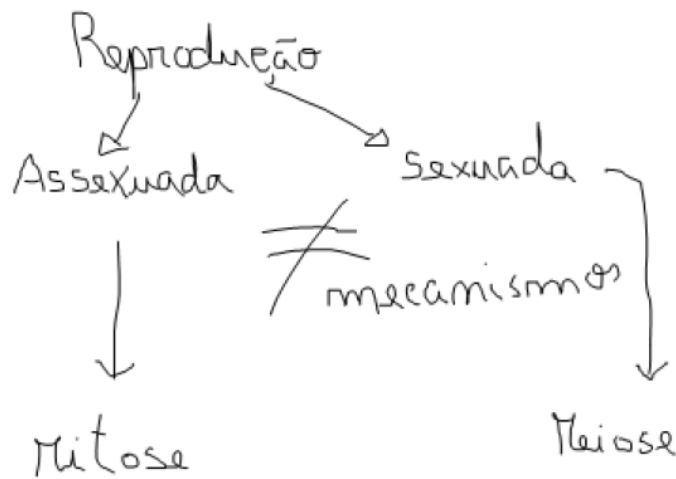 Reprodução
Assexuada
Sexuada
≠
mecanismos
Mitose
Meiose